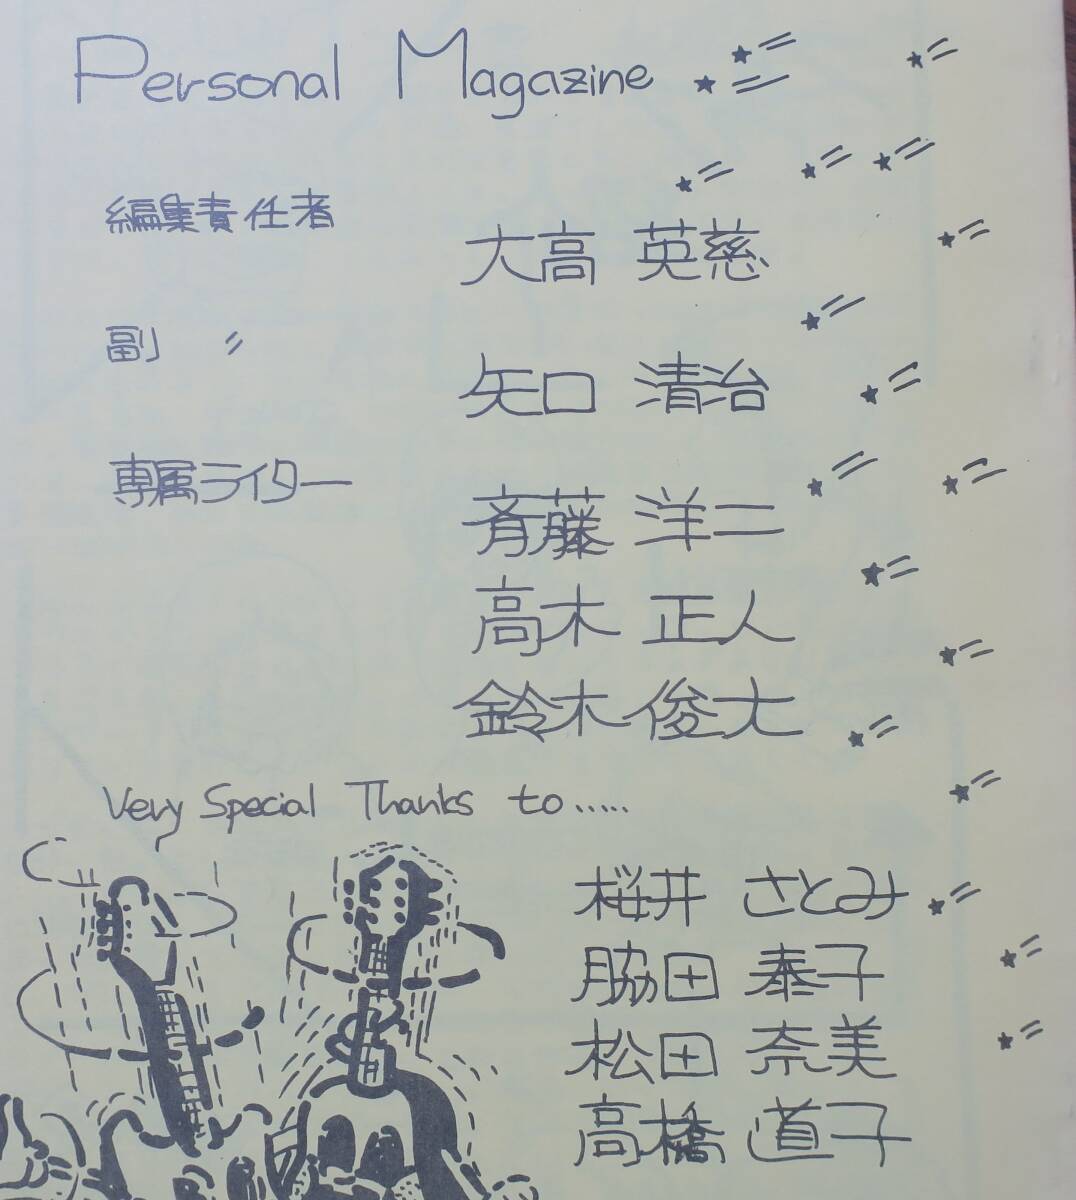 Personal Magazine
編集責任者
大高 英慈
副 〃
矢口 清治
専属ライター
斉藤 洋二
高木 正人
鈴木俊大
Very Special Thanks to.....
桜井 さとみ
脇田 泰子
松田 奈美
高橋 道子